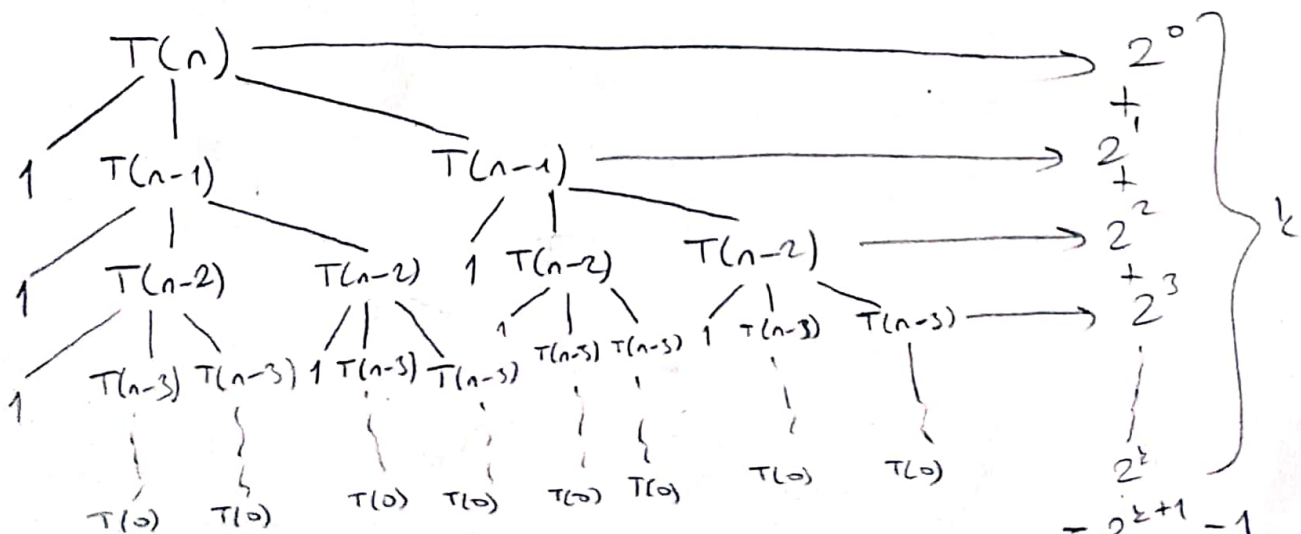 T(n) 2^0
+
1 T(n-1) T(n-1) 2^1
+
1 T(n-2) T(n-2) 1 T(n-2) T(n-2) 2^2
+
1 T(n-3) T(n-3) 1 T(n-3) T(n-3) 1 T(n-3) T(n-3) 1 T(n-3) T(n-3) 2^3
T(0) T(0) T(0) T(0) T(0) T(0) T(0) T(0) 2^k
k
= 2^k+1 - 1